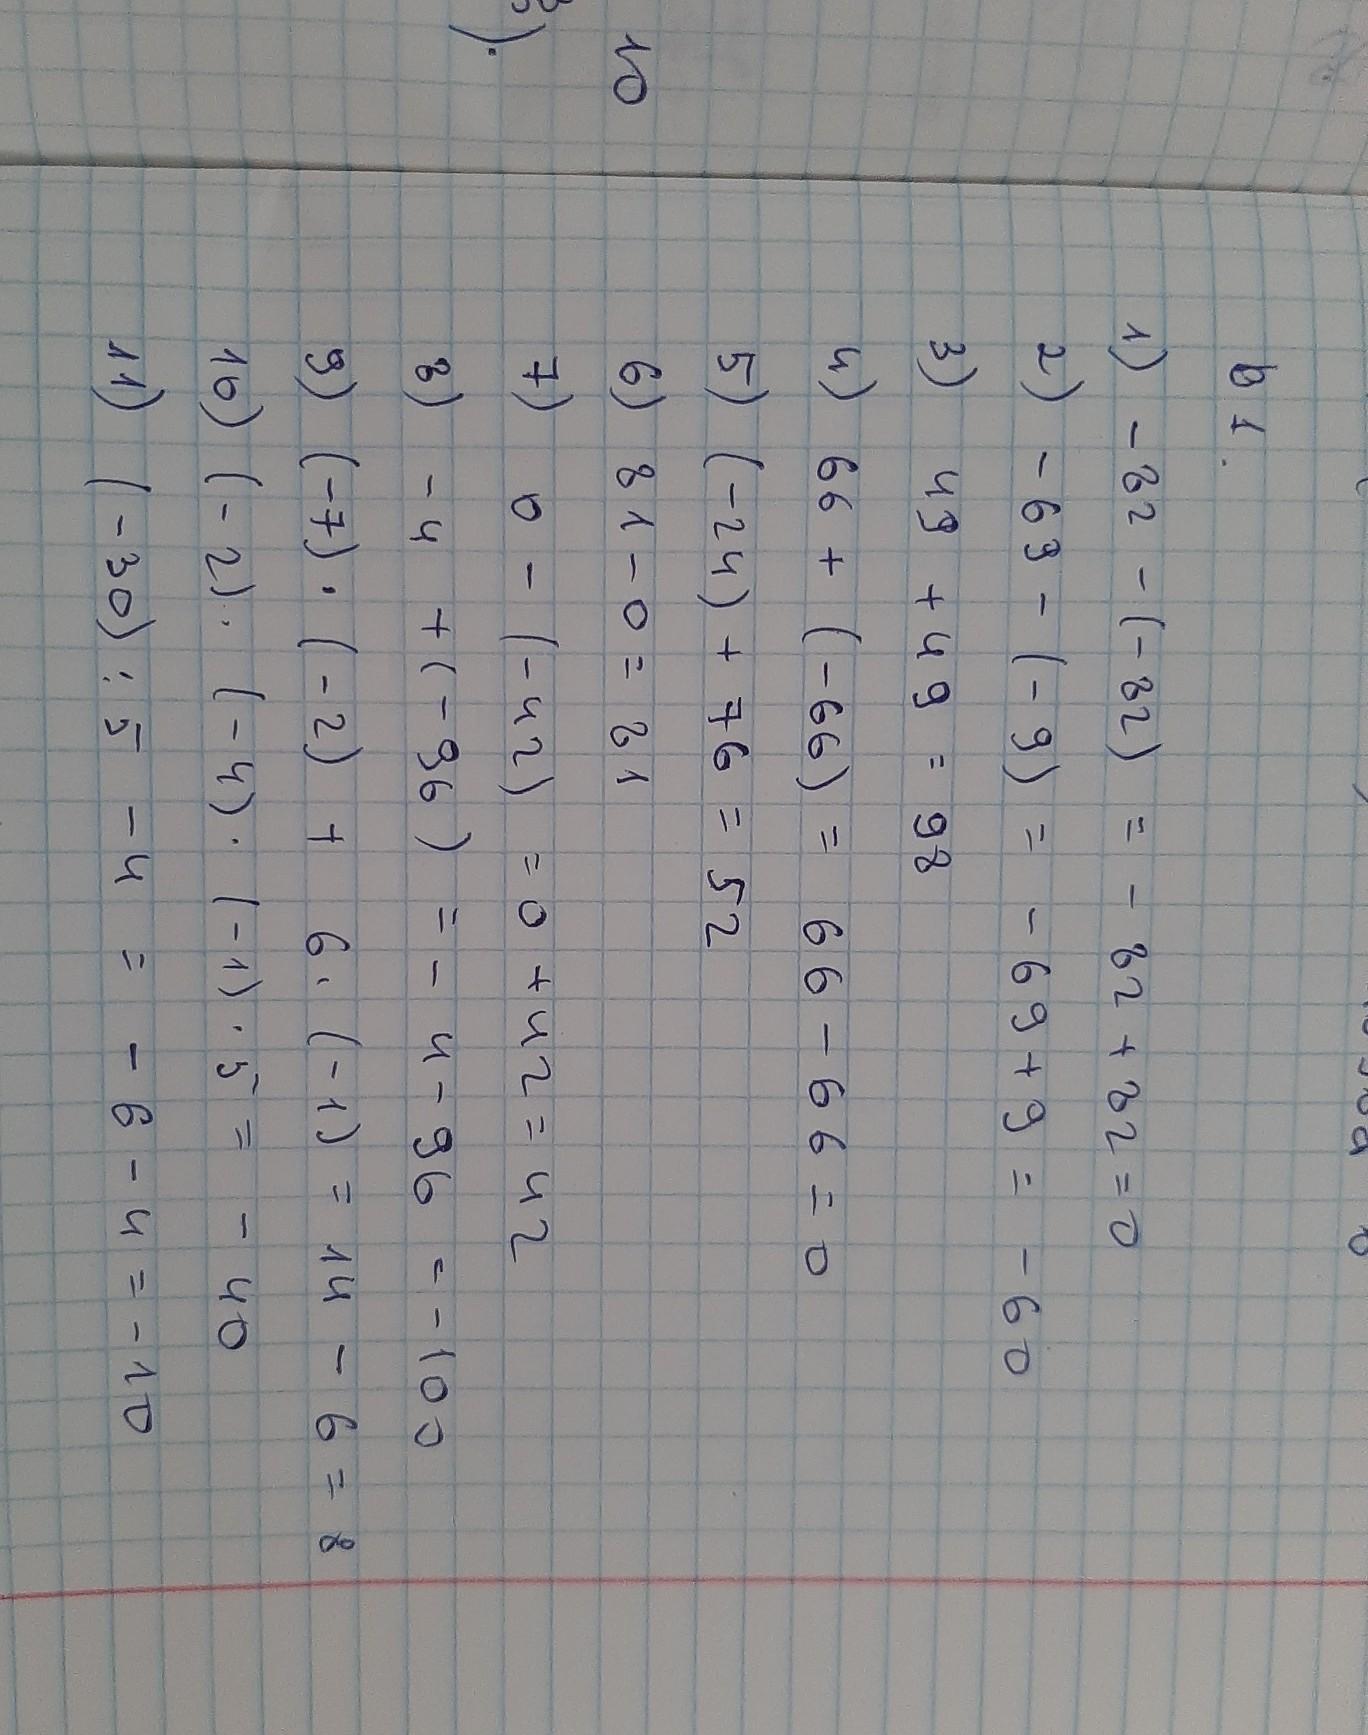 в 1.
1) -82 - (-82) = - 82 + 82 = 0
2) - 69 - (- 9) = - 69 + 9 = - 60
3) 49 + 49 = 98
4) 66 + (-66) = 66 - 66 = 0
5) (-24) + 76 = 52
6) 81 - 0 = 81
7) 0 - (-42) = 0 + 42 = 42
8) - 4 + (- 96) = - 4 - 96 = - 100
9) (-7) · (-2) + 6 · (-1) = 14 - 6 = 8
10) (-2) · (-4) · (-1) · 5 = - 40
11) (-30) : 5 - 4 = - 6 - 4 = - 10
10
).